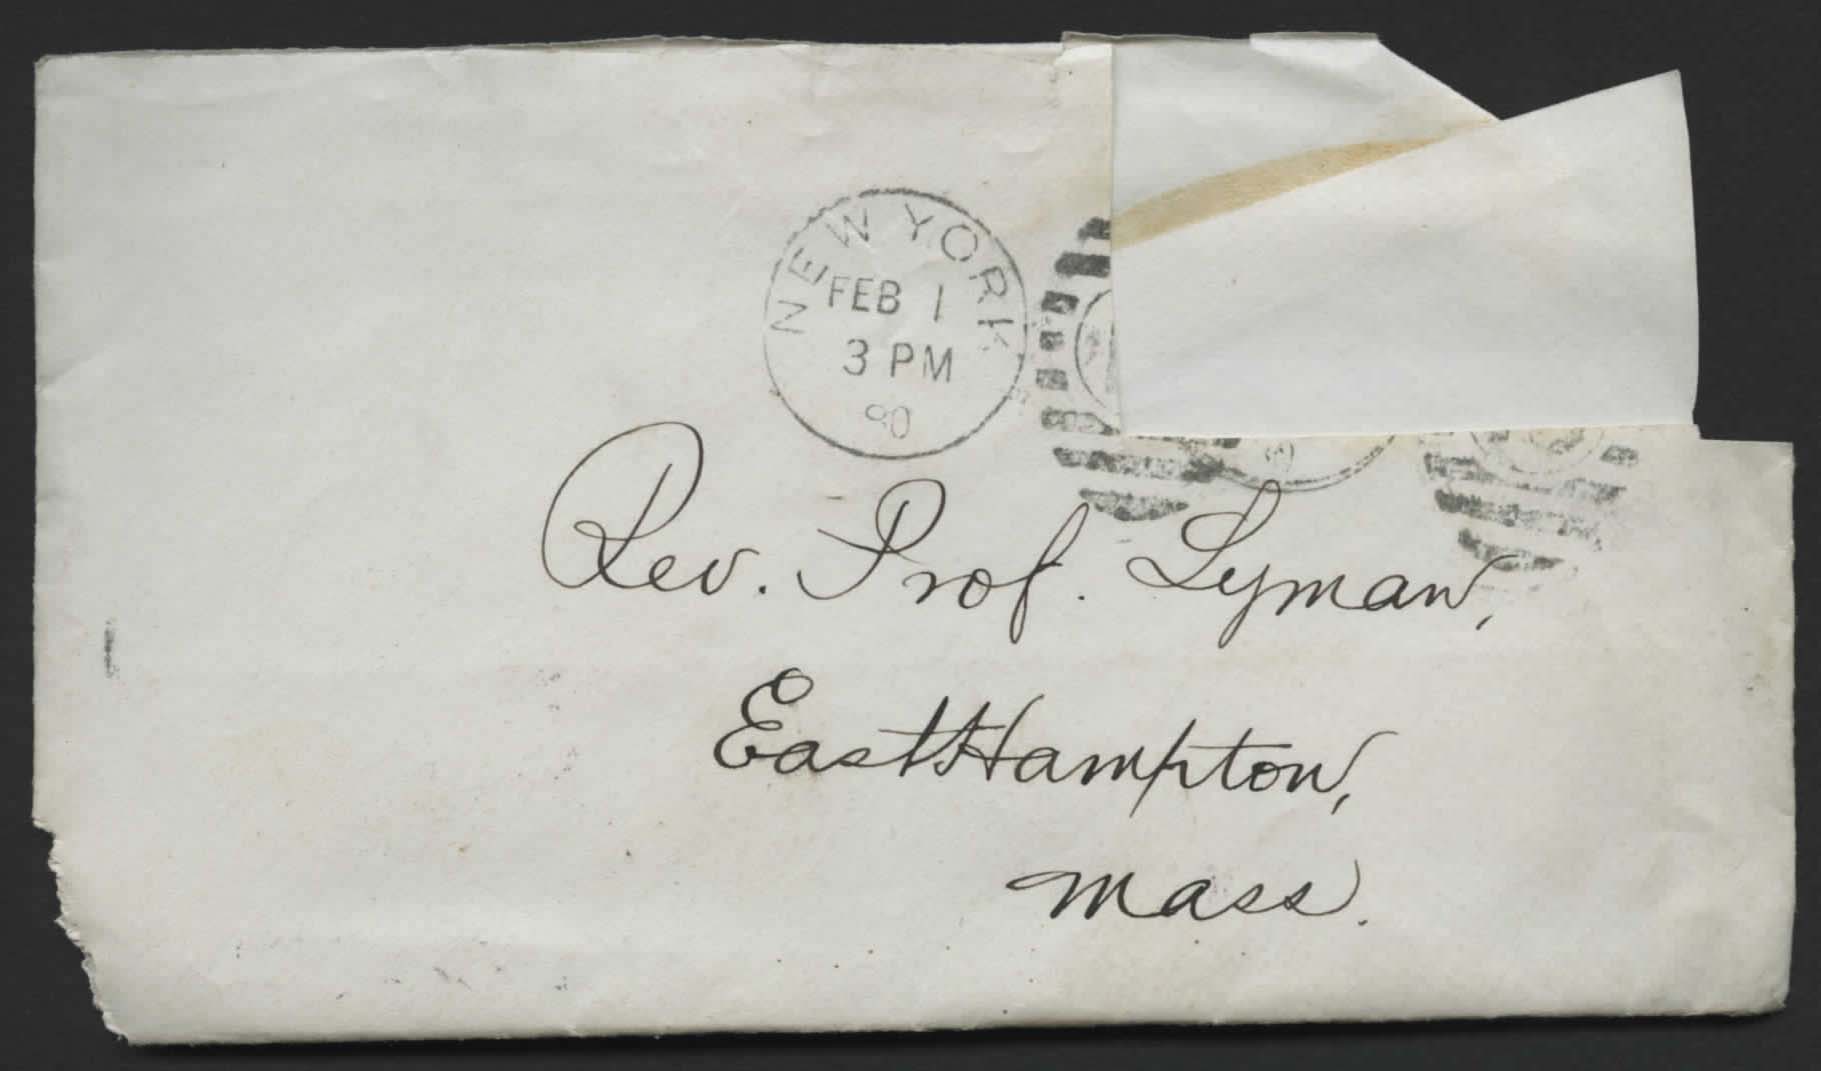 NEW YORK
FEB 1
3 PM
80
Rev. Prof. Lyman,
EastHampton,
Mass.